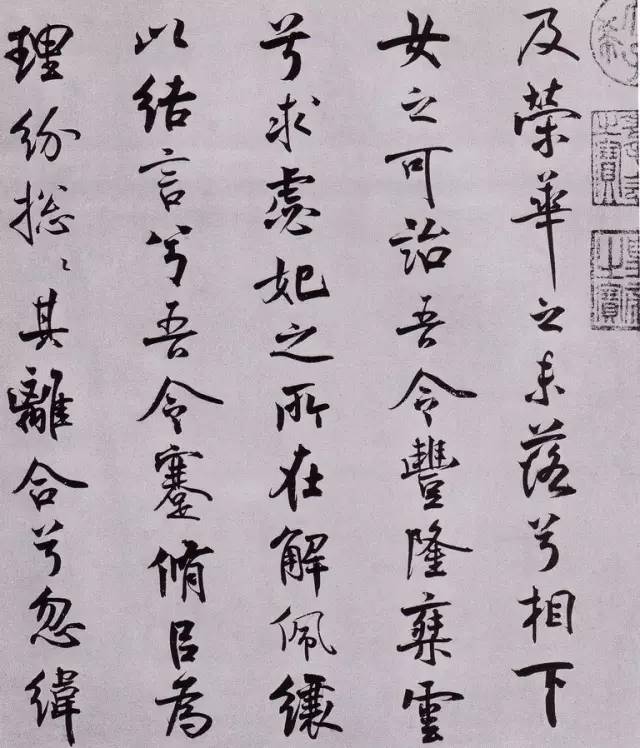 及榮華之未落兮相下
女之可詒吾令豐隆椉雲
兮求虙妃之所在解佩纕
以結言兮吾令蹇脩㠯為
理紛揔〻其離合兮忽緯
之寶
之寶